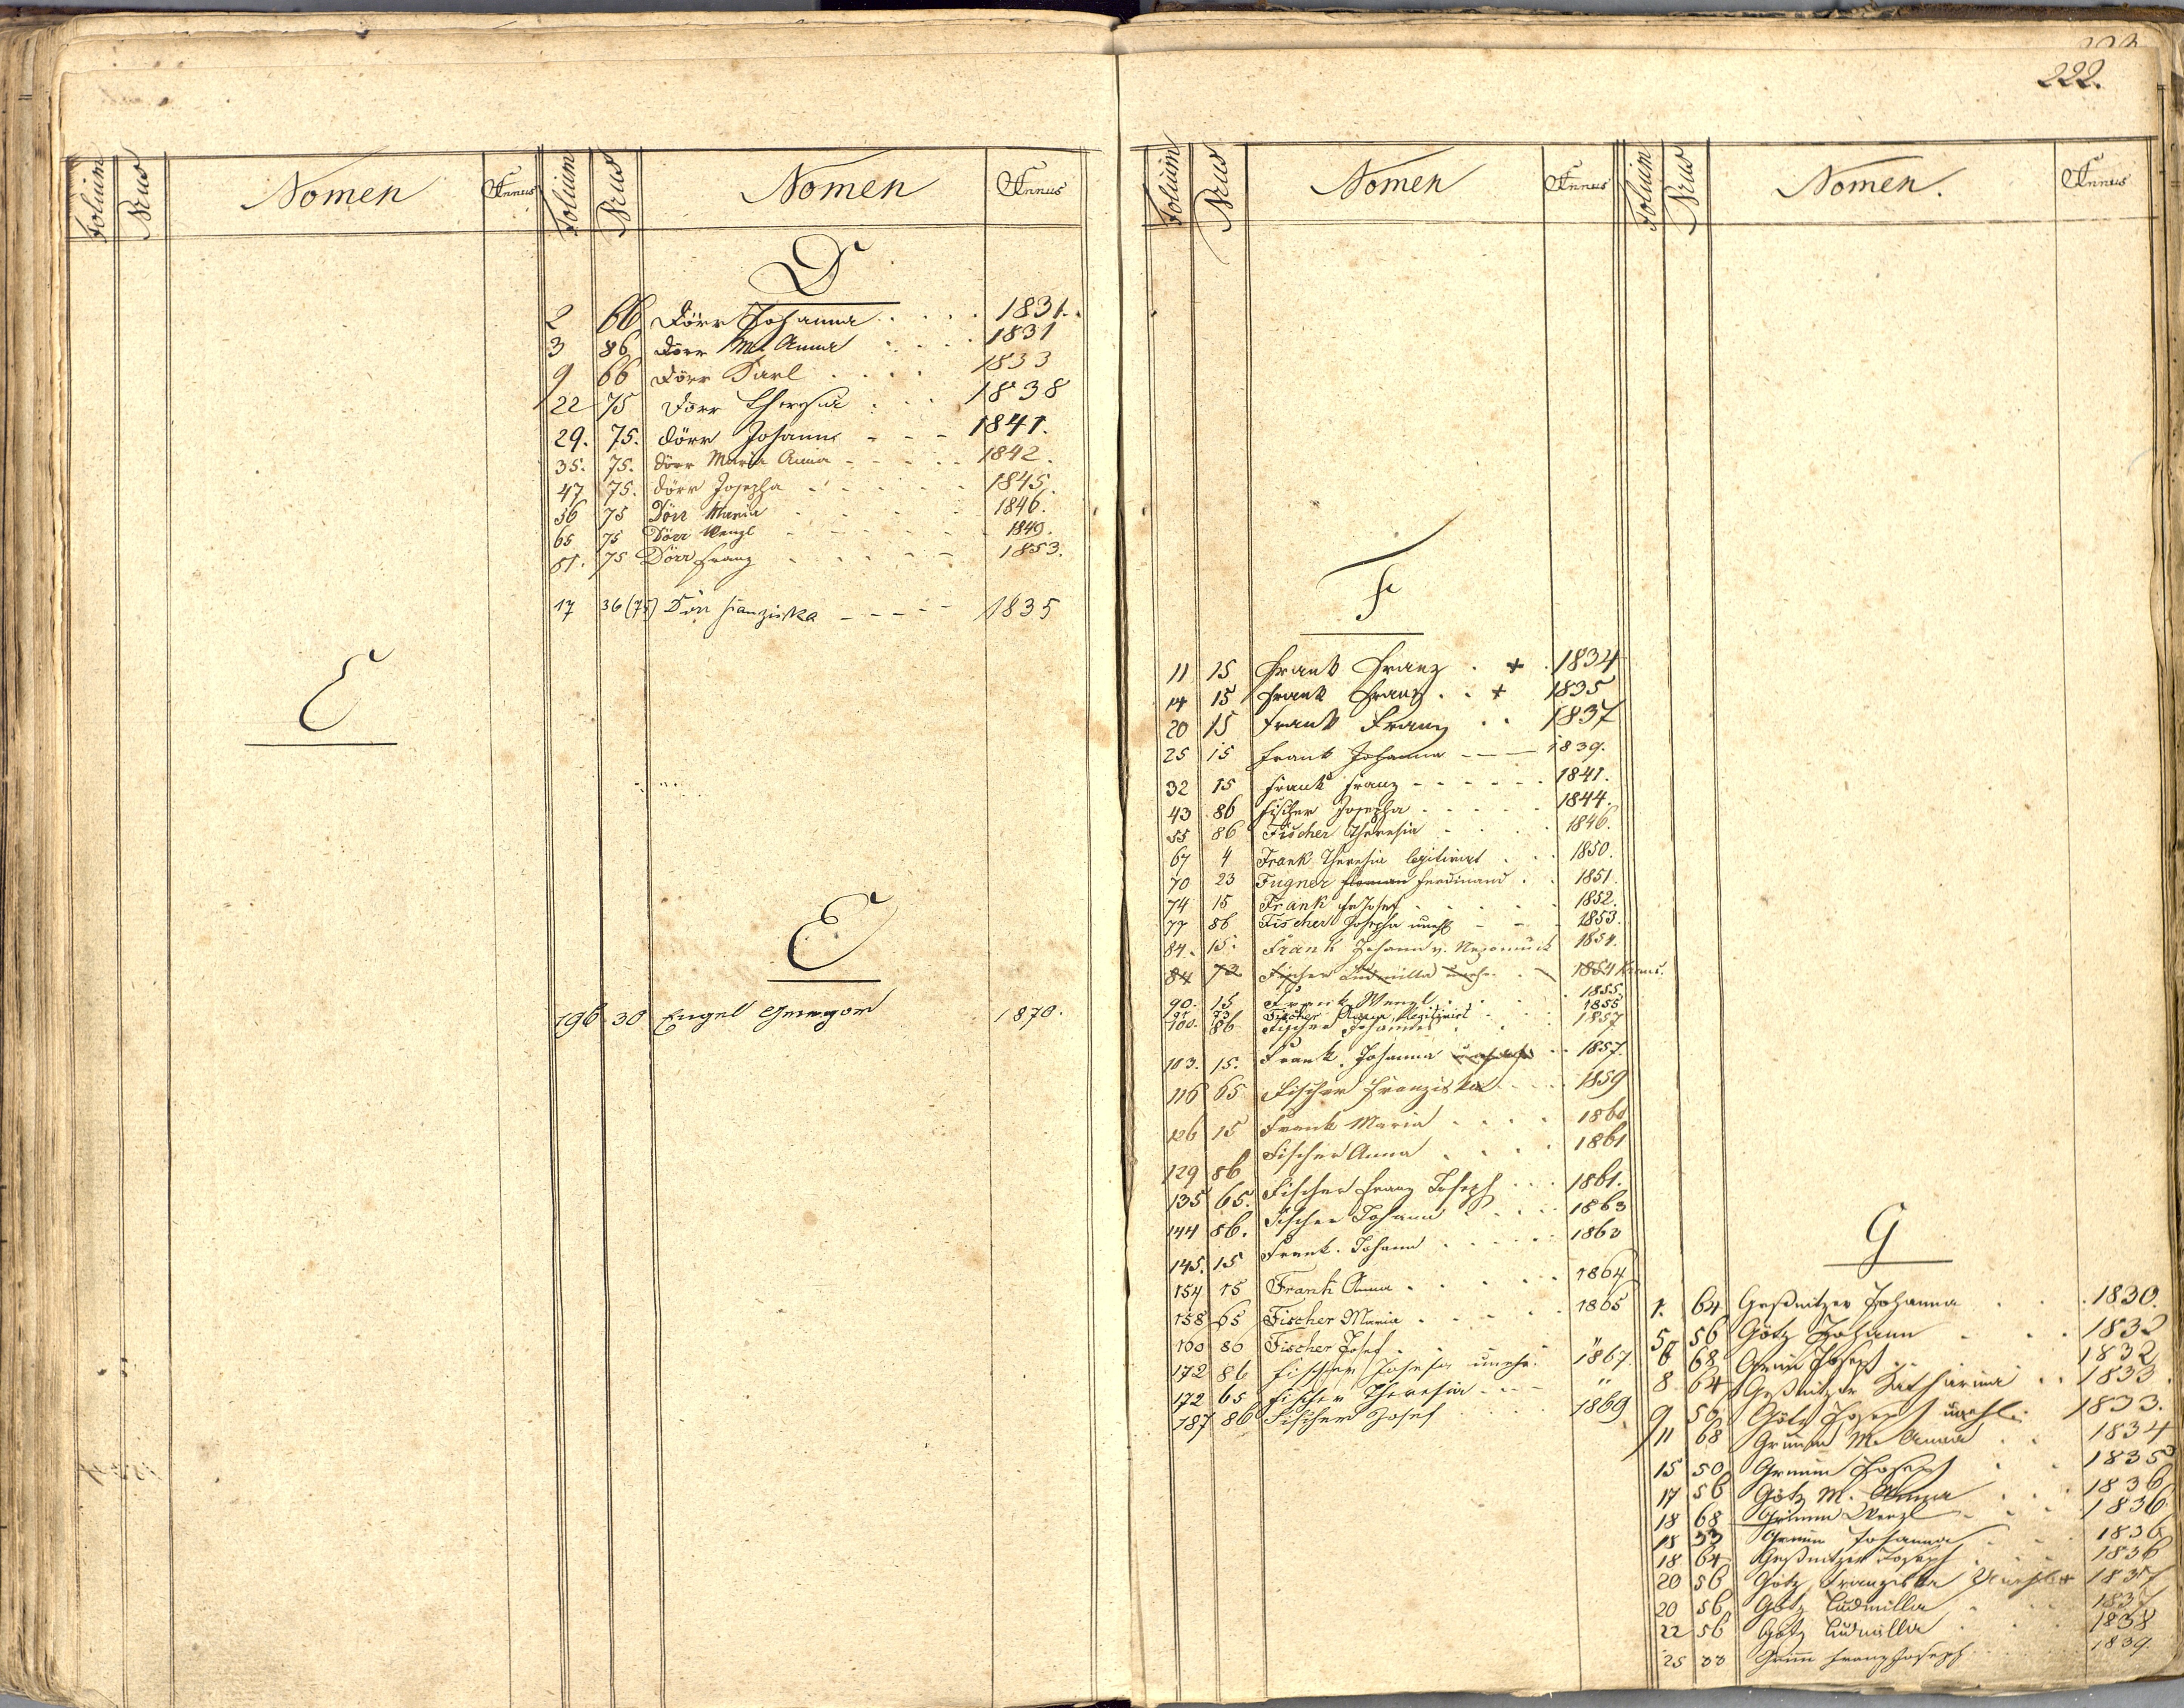 222.
Folium Nrus Nomen Annus Folium Nrus Nomen Annus
E
D
2 66 Dörr Johanna 1831.
3 86 Dörr M. Anna 1831
9 66 Dörr Karl 1833
22 75 Dörr Theresia 1838
29. 75. Dörr Johann 1841.
35. 75. Dörr Maria Anna 1842.
47 75. Dörr Josepha 1845.
56 75 Dörr Maria 1846.
65 75 Dörr Wenzl 1849.
81. 75 Dörr Franz 1853.
17 36 (75) Dörr Franziska 1835
E
196 30 Engel Gregor 1870.
Folium Nrus Nomen Annus Folium Nrus Nomen. Annus
F
11 15 Frank Franz . + . 1834
14 15 Frank Franz . . + 1835
20 15 Frank Franz . . 1837
25 15 Frank Johanna 1839.
32 15 Frank Franz 1841.
43 86 Fischer Josepha 1844.
55 86 Fischer Theresia 1846.
67 4 Frank Theresia legitimirt 1850.
70 23 Fugner Ferdinand 1851.
74 15 Frank Josef 1852.
77 86 Fischer Josepha unehl 1853.
84. 15. Frank Johann v. Nepomuck 1854.
84 72 Fischer Ludmilla unehe. 1854
90. 15 Frank Wenzl 1855.
95 73 Fischer Maria, legitimirt 1855
100. 86 Fischer Johanna 1857
103. 15. Frank Johanna 1857.
116 65 Fischer Franziska 1859
126 15 Frank Maria 1860
129 86 Fischer Anna 1861
135 65. Fischer Franz Joseph 1861.
144 86. Fischer Johann 1863
145. 15 Frank Johann 1863
154 15 Frank Anna 1864
158 65 Fischer Maria 1865
160 86 Fischer Josef "
172 86 Fischer Josefa unehe. 1867.
172 65 Fischer Theresia "
187 86 Fischer Josef 1869
G
1. 64 Geßnitzer Johanna 1830.
5 56 Götz Johann 1832
6 68 Grimm Joseph 1832
8 64 Geßnitzer Katharina 1833.
9 56 Götz Joseph unehl. 1833.
11 68 Grimm M. Anna 1834
15 50 Grimm Joseph 1835
17 56 Götz M. Anna 1836
18 68 Grimm Wenzl 1836
18 33 Grimm Johanna 1836
18 64 Geßnitzer Joseph 1836
20 56 Götz Franziska 1837
20 56 Götz Ludmilla 1837
22 56 Götz Ludmilla 1838
25 33 Grimm Franz Joseph 1839.